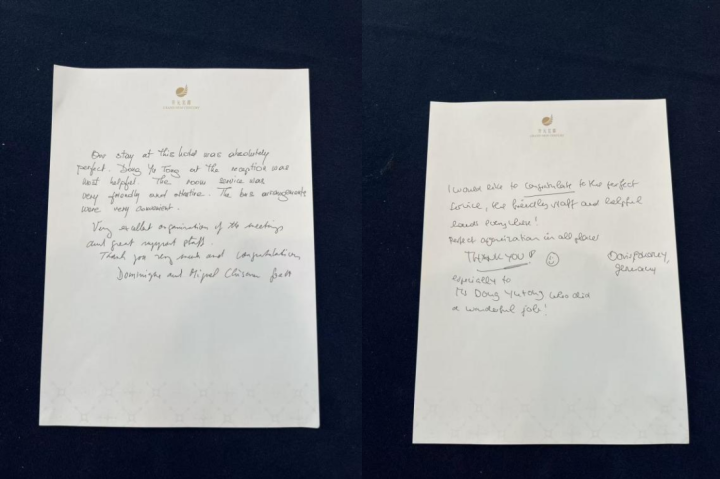 Our stay at this hotel was absolutely
perfect. Dong Yu Tong at the reception was
most helpful. The room service was
very friendly and attentive. The bus arrangements
were very convenient.
Very excellent organisation of the meetings
and great support staff.
Thank you very much and congratulations
Dominique and Miguel
I would like to congratulate to the perfect
service, the friendly staff and helpful
hands everywhere!
Perfect organization in all places!
THANK YOU!
Germany
especially to
Ms Dong Yutong who did
a wonderful job!